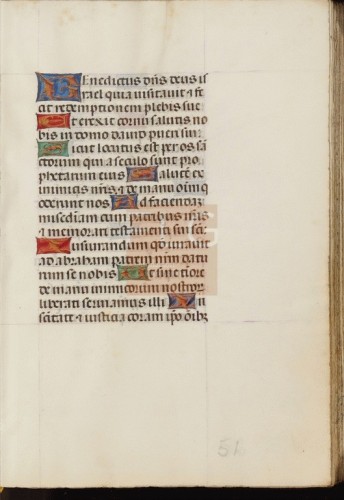 Benedictus dns deus is
rael quia visitavit & fe
cit redemptionem plebis sue
Et erexit cornu salutis no
bis in domo david pueri sui
Sicut locutus est per os sā
ctorum qui a seculo sunt pro
phetarum eius Salutē ex
inimicis nr̄is & de manu oīm q̄
oderunt nos Ad faciendaz
mīsc̄diam cum patribus nr̄is
& memorari testamenti sui sc̄ti
Iusiurandum qd̄ iuravit
ad abraham patrem nr̄m datu
rum se nobis Ut sine timore
de manu inimicorum nostror
liberati serviamus illi In
sc̄itate & iusticia coram ip̄o oībz
51